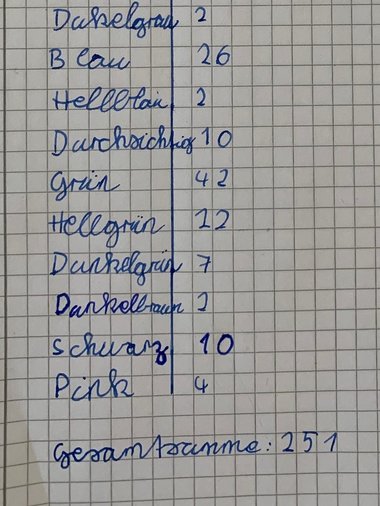 Dunkelgrau 2
Blau 26
Hellblau 2
Durchsichtig 10
Grün 42
Hellgrün 12
Dunkelgrün 7
Dunkelbraun 1
Schwarz 10
Pink 4
Gesamtsumme: 251